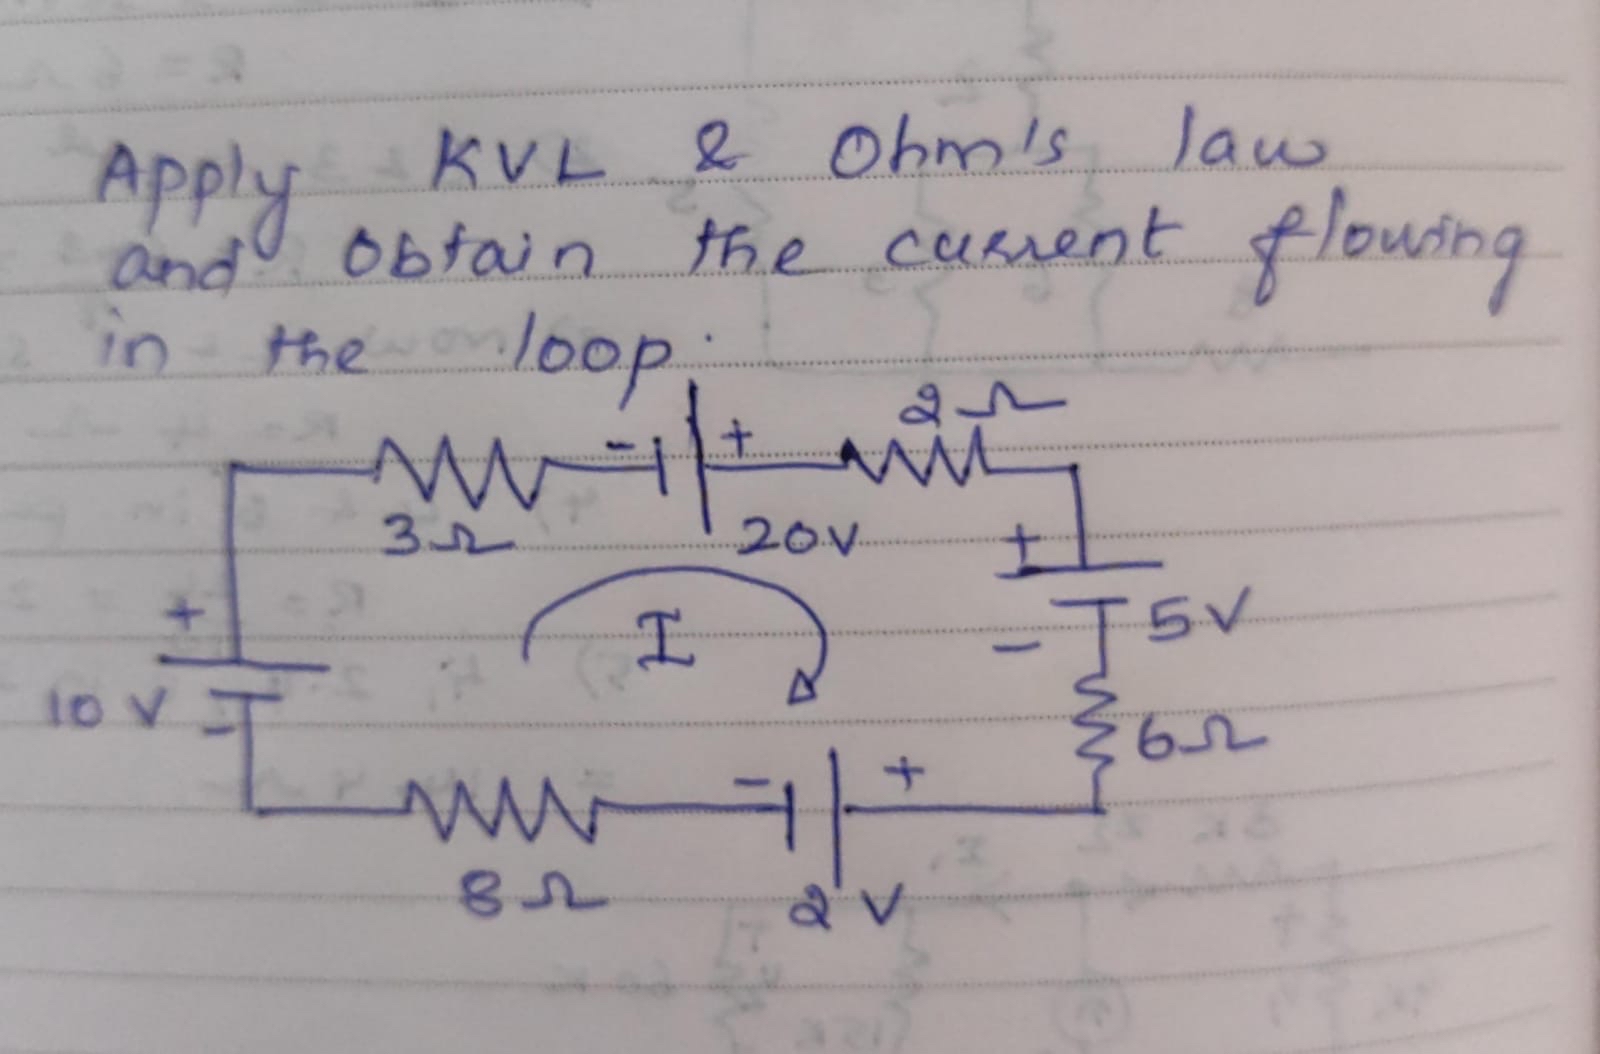 Apply KVL & Ohm's law
and obtain the current flowing
in the loop.
2Ω
- +
3Ω 20V +
+ I - 5V
10 V - 6Ω
- +
8Ω 2V